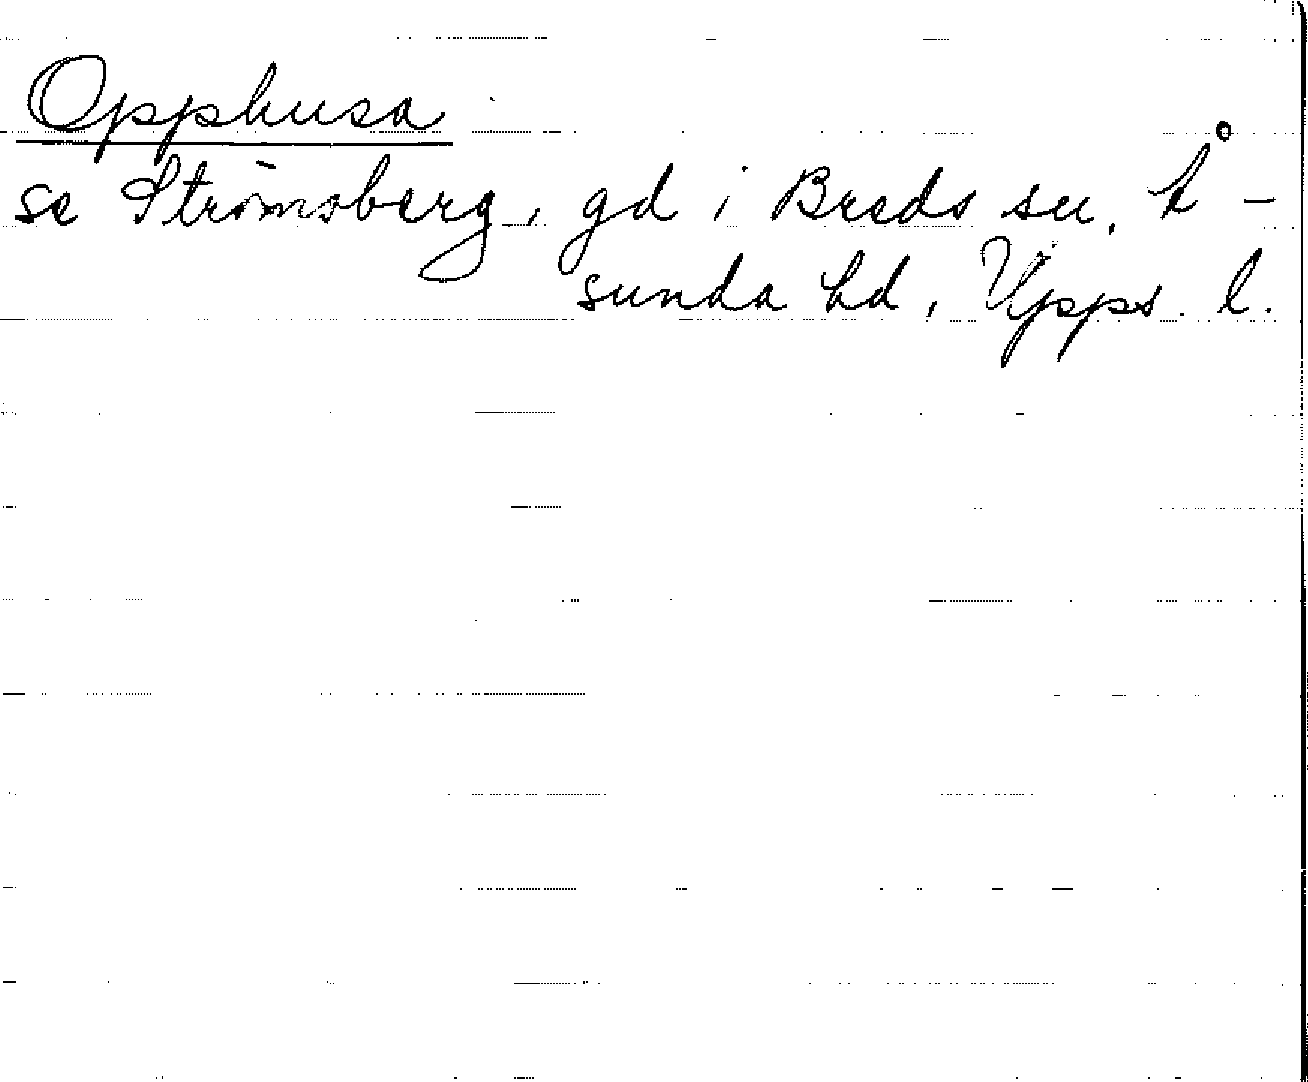 Opphusa
se Strömsberg, gd i Breds sn, Å-
sunda hd, Upps. l.